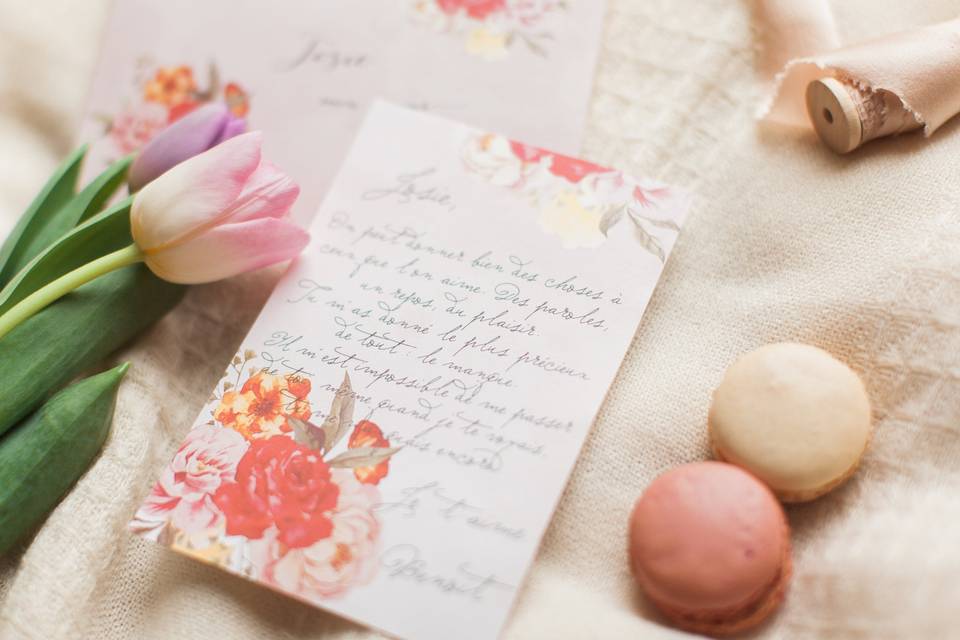 Josie
Josie,
On peut donner bien des choses à
ceux que l'on aime. Des paroles,
un repos, du plaisir.
Tu m'as donné le plus précieux
de tout : le manque.
Il m'est impossible de me passer
de toi, même quand je te voyais
tu me manquais encore.
Je t'aime
Benoit